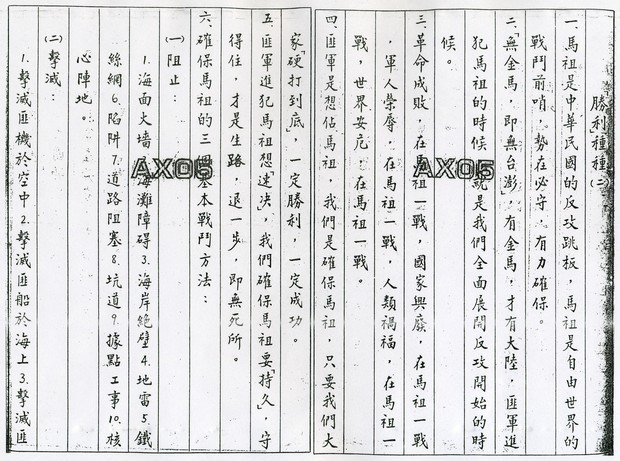 勝利種種(二)
一、馬祖是中華民國的反攻跳板，馬祖是自由世界的
戰鬥前哨，勢在必守，有力確保。
二、「無金馬，即無台澎，有金馬，才有大陸，匪軍進
犯馬祖的時候，就是我們全面展開反攻開始的時
候。
三、革命成敗，在馬祖一戰，國家興廢，在馬祖一戰
，軍人榮辱，在馬祖一戰，人類禍福，在馬祖一
戰，世界安危，在馬祖一戰。
四、匪軍是想佔馬祖，我們是確保馬祖，只要我們大
家「硬打到底」，一定勝利，一定成功。
五、匪軍進犯馬祖想「速決」，我們確保馬祖要「持久」，守
得住，才是生路，退一步，即無死所。
六、確保馬祖的三個基本戰鬥方法：
(一)阻止：
1.海面火墙 2.海灘障碍 3.海岸絕壁 4.地雷 5.鐵
絲網 6.陷阱 7.道路阻塞 8.坑道 9.據點工事 10.核
心陣地。
(二)擊滅：
1.擊滅匪機於空中 2.擊滅匪船於海上 3.擊滅匪
AX05
AX05